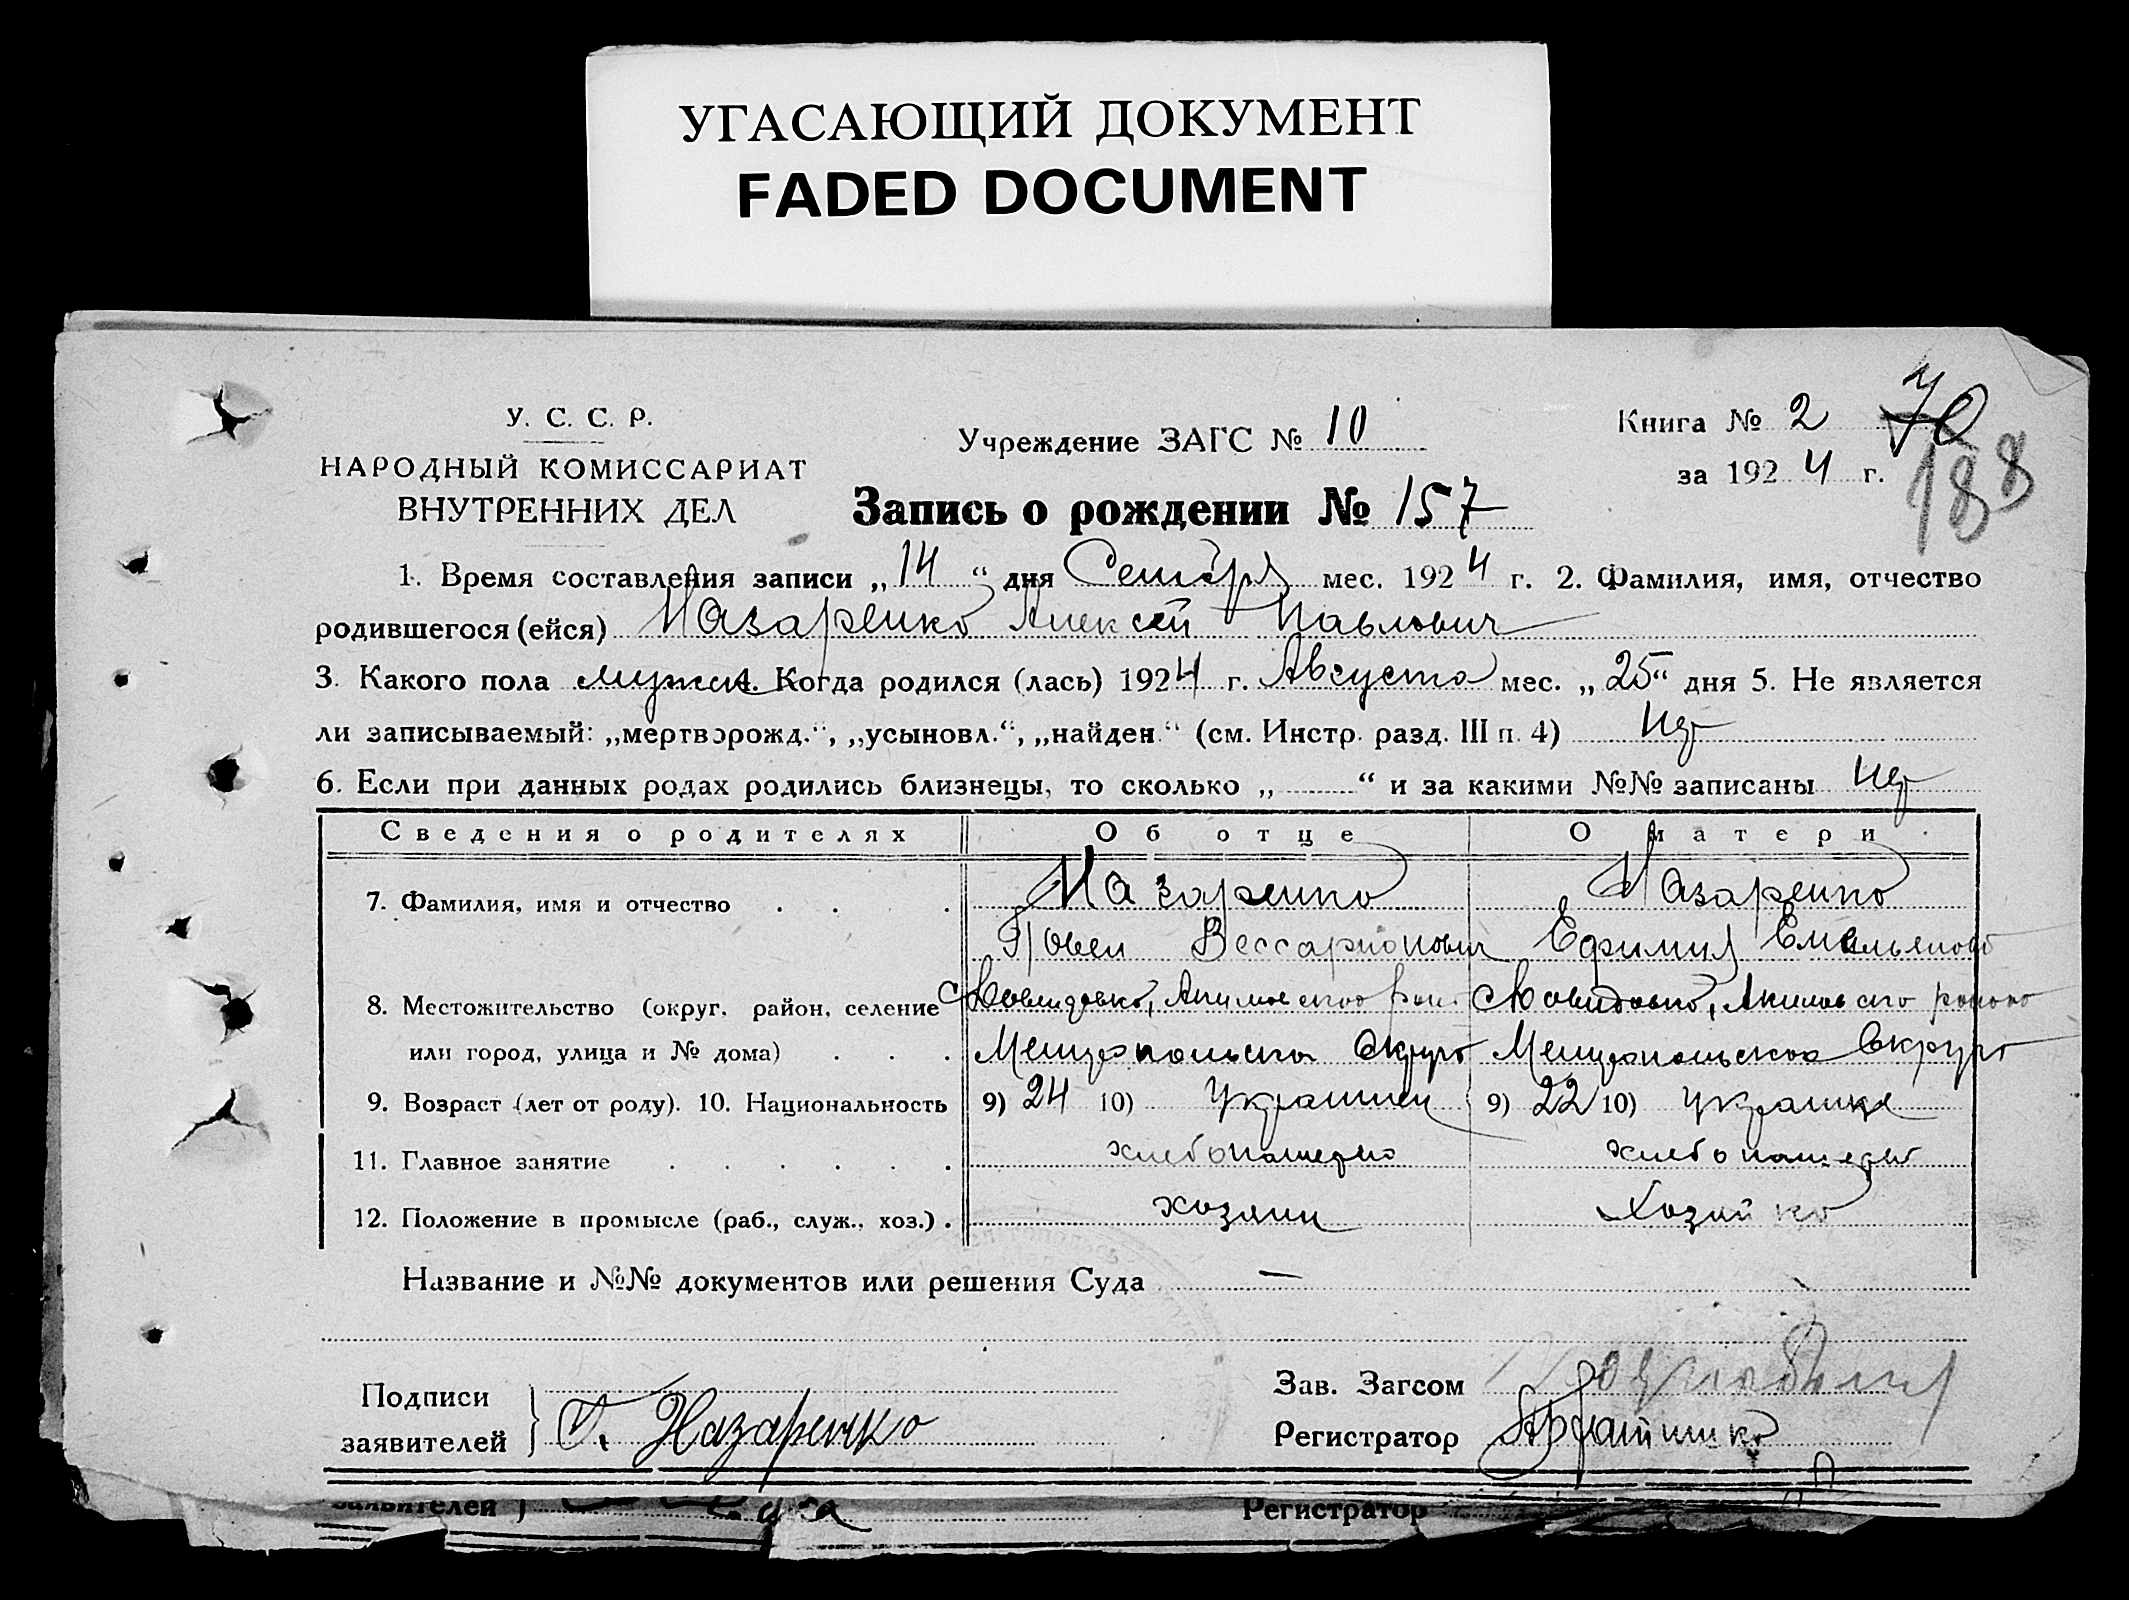 УГАСАЮЩИЙ ДОКУМЕНТ
FADED DOCUMENT
У. С. С. Р.
НАРОДНЫЙ КОМИССАРИАТ
ВНУТРЕННИХ ДЕЛ
Учреждение ЗАГС № 10
Книга № 2 70
за 1924 г. 188
Запись о рождении № 157
1. Время составления записи „14“ дня Сентября мес. 1924 г. 2. Фамилия, имя, отчество
родившегося (ейся) Назаренко Алексей Павлович
3. Какого пола мужск 4. Когда родился (лась) 1924 г. Августа мес. „25“ дня 5. Не является
ли записываемый: „мертворожд.“, „усыновл.“, „найден.“ (см. Инстр. разд. III п. 4) Нет
6. Если при данных родах родились близнецы, то сколько „ “ и за какими №№ записаны Нет
Сведения о родителях Об отце О матери
7. Фамилия, имя и отчество Назаренко Назаренко
Павел Вессарионович Ефимия Емельянова
8. Местожительство (округ, район, селение С Давидовка, Акимовского Давидовка, Акимовского района
или город, улица и № дома) Мелитопольского Округа Мелитопольского Округа
9. Возраст (лет от роду). 10. Национальность 9) 24 10) Украинец 9) 22 10) Украинка
11. Главное занятие хлебопашество хлебопашество
12. Положение в промысле (раб., служ., хоз.) хозяин Хозяйка
Название и №№ документов или решения Суда —
Подписи
заявителей П. Назаренко
Зав. Загсом
Регистратор
заявителей
Регистратор